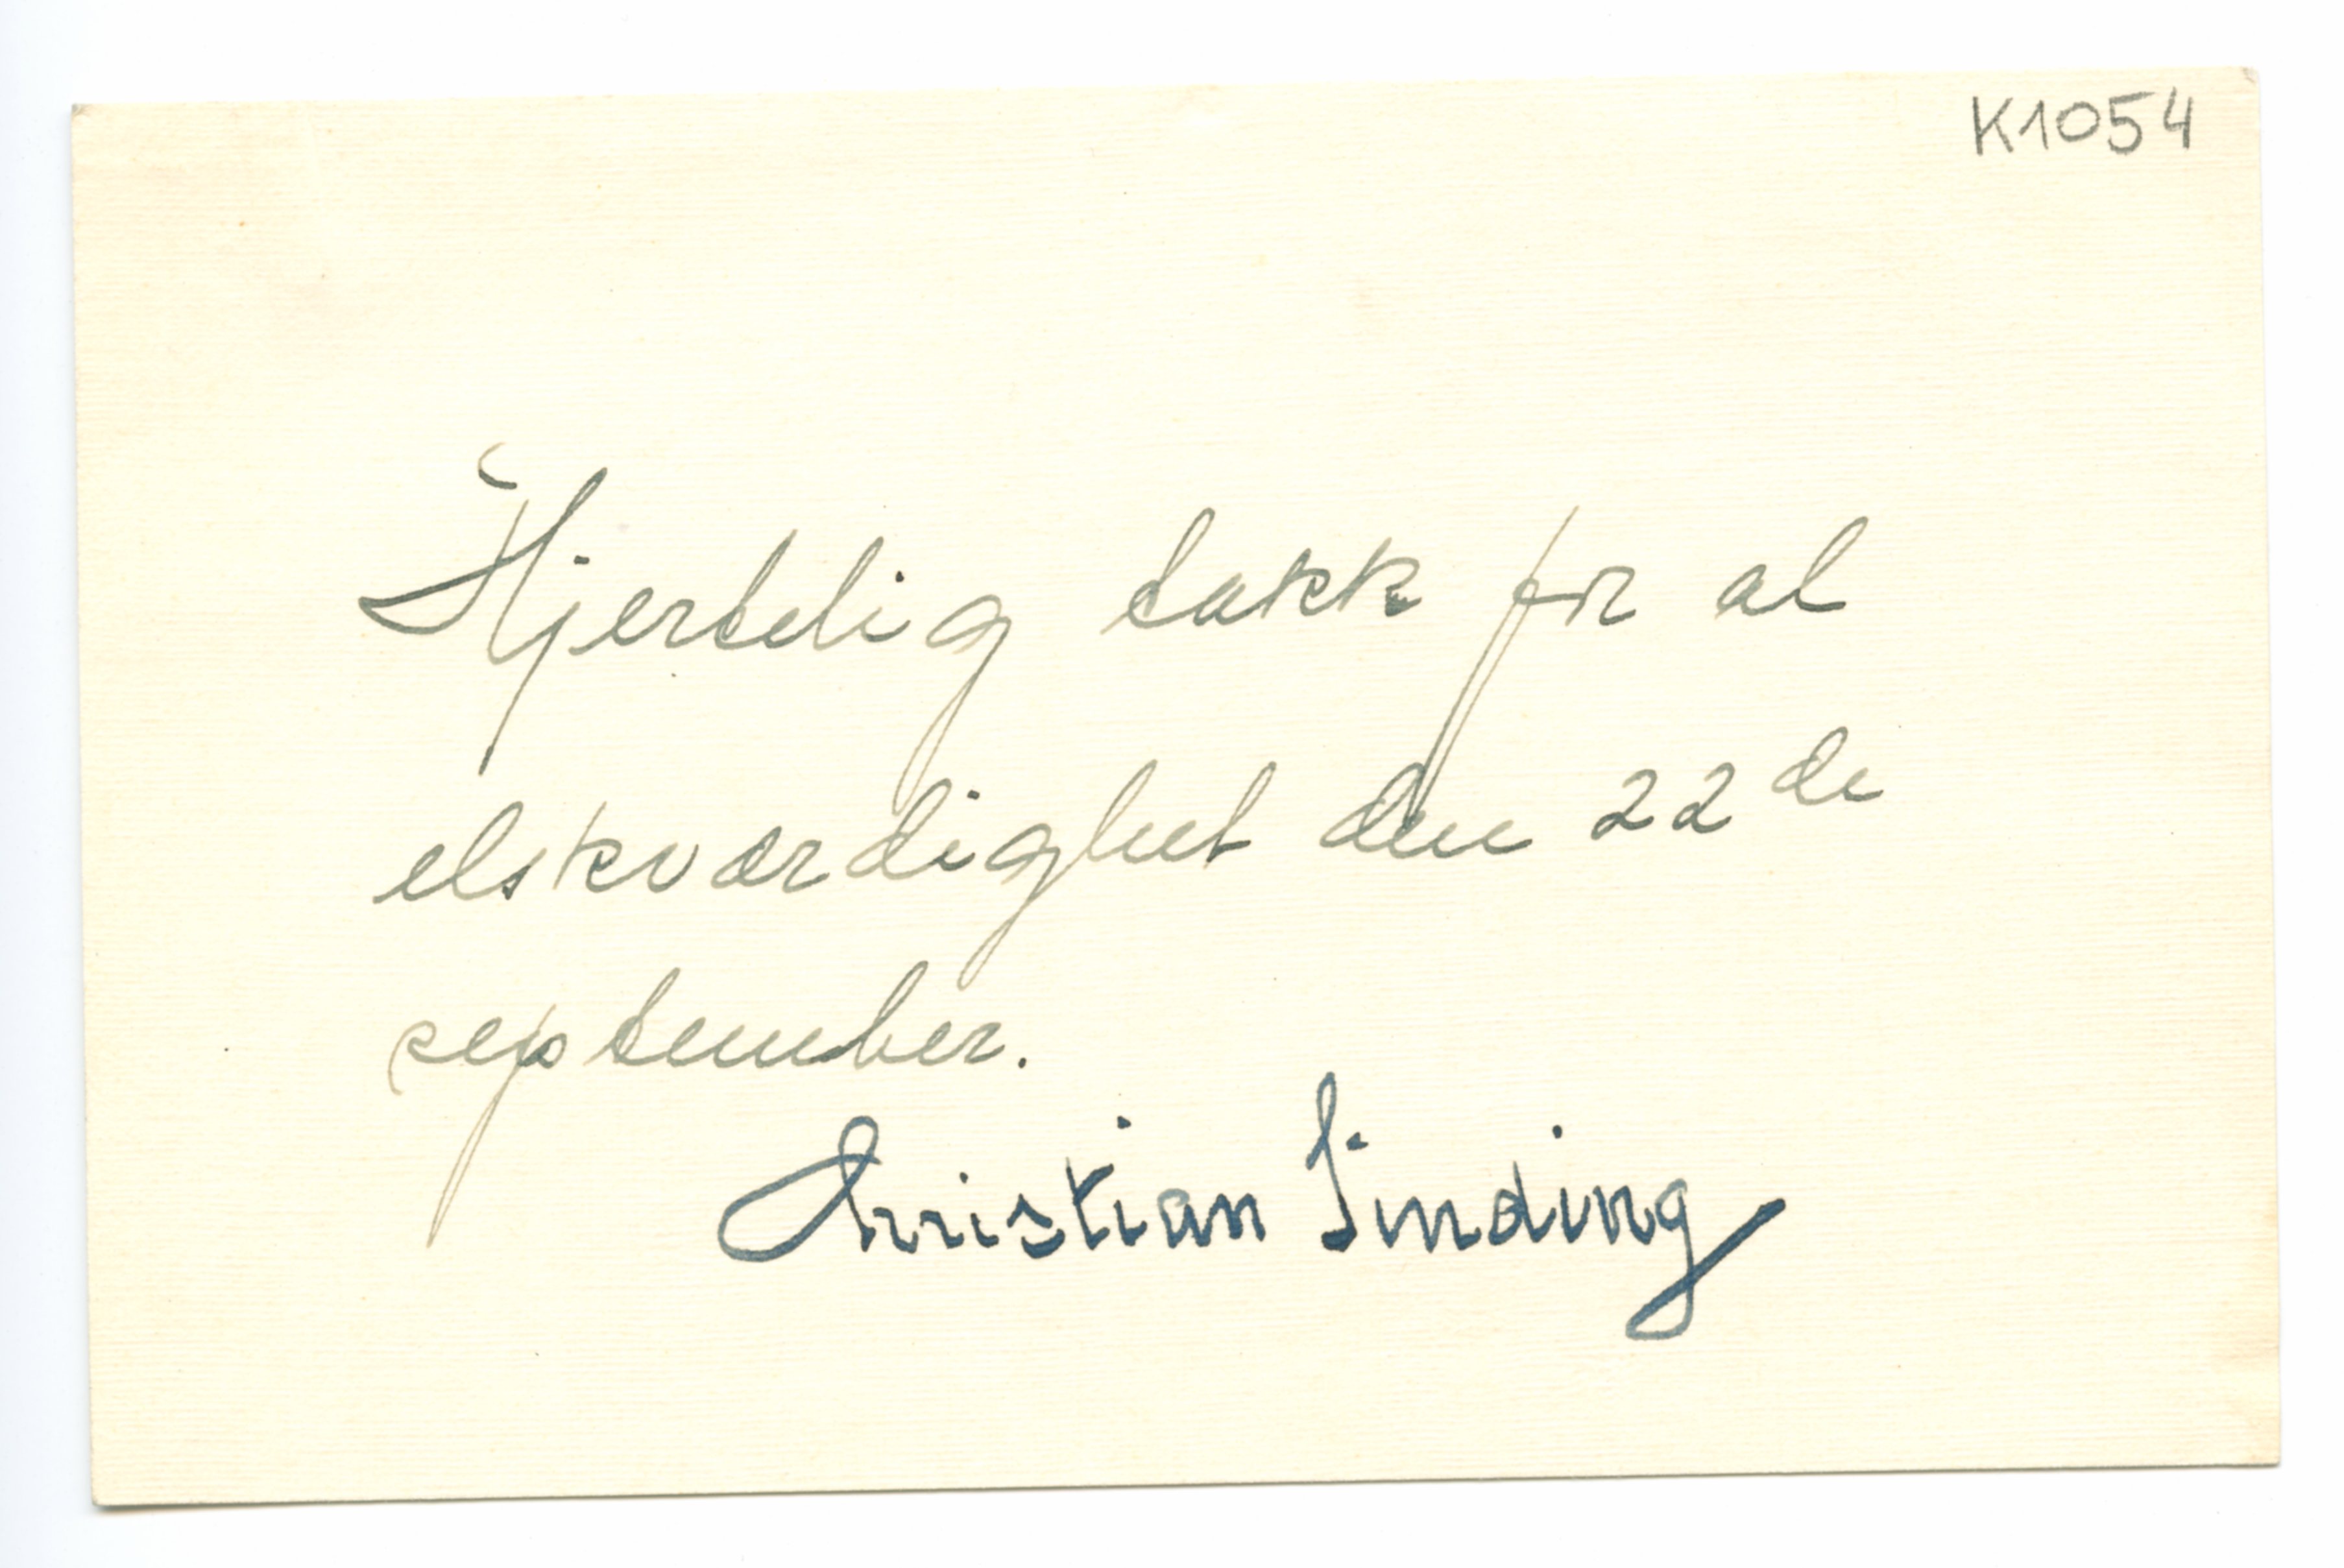 K1054
Hjertelig takk for al
elskværdighet den 22de
september.
Christian Sinding